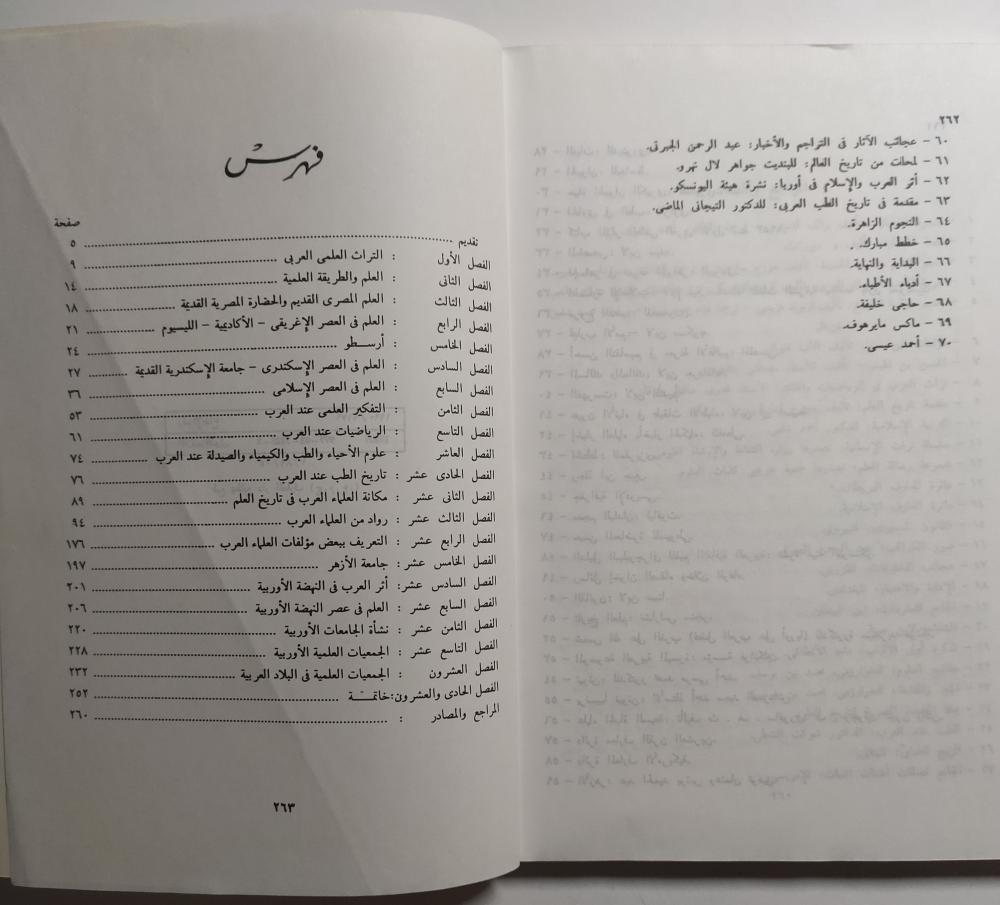 ٢٦٢
٦٠ – عجائب الآثار فى التراجم والأخبار: عبد الرحمن الجبرتى.
٦١ – لمحات من تاريخ العالم: للبنديت جواهر لال نهرو.
٦٢ – أثر العرب والإسلام فى أوربا: نشرة هيئة اليونسكو.
٦٣ – مقدمة فى تاريخ الطب العربى: للدكتور التيجانى الماضى.
٦٤ – النجوم الزاهرة.
٦٥ – خطط مبارك.
٦٦ – البداية والنهاية.
٦٧ – أدباء الأطباء.
٦٨ – حاجى خليفة.
٦٩ – ماكس مايرهوف.
٧٠ – أحمد عيسى.
فهرس
صفحة
تقديم ........ ٥
الفصل الأول : التراث العلمى العربى ........ ٩
الفصل الثانى : العلم والطريقة العلمية ........ ١٤
الفصل الثالث : العلم المصرى القديم والحضارة المصرية القديمة ........ ١٨
الفصل الرابع : العلم فى العصر الإغريقى – الأكاديمية – الليسيوم ........ ٢١
الفصل الخامس : أرســطو ........ ٢٤
الفصل السادس : العلم فى العصر الإسكندرى – جامعة الإسكندرية القديمة ........ ٢٧
الفصل السابع : العلم فى العصر الإسلامى ........ ٣٦
الفصل الثامن : التفكير العلمى عند العرب ........ ٥٣
الفصل التاسع : الرياضيات عند العرب ........ ٦١
الفصل العاشر : علوم الأحياء والطب والكيمياء والصيدلة عند العرب ........ ٧٤
الفصل الحادى عشر : تاريخ الطب عند العرب ........ ٧٦
الفصل الثانى عشر : مكانة العلماء العرب فى تاريخ العلم ........ ٨٩
الفصل الثالث عشر : رواد من العلماء العرب ........ ٩٤
الفصل الرابع عشر : التعريف ببعض مؤلفات العلماء العرب ........ ١٧٦
الفصل الخامس عشر : جامعة الأزهر ........ ١٩٧
الفصل السادس عشر: أثر العرب فى النهضة الأوربية ........ ٢٠١
الفصل السابع عشر : العلم فى عصر النهضة الأوربية ........ ٢٠٦
الفصل الثامن عشر : نشأة الجامعات الأوربية ........ ٢٢٠
الفصل التاسع عشر : الجمعيات العلمية الأوربية ........ ٢٢٨
الفصل العشرون : الجمعيات العلمية فى البلاد العربية ........ ٢٣٢
الفصل الحادى والعشرون:خاتمــة ........ ٢٥٢
المراجع والمصادر : ........ ٢٦٠
٢٦٣